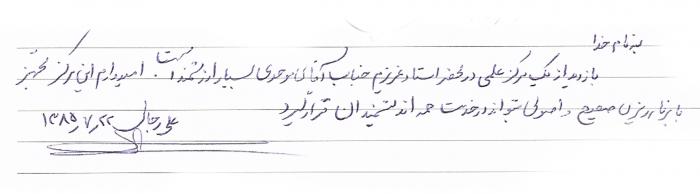 بنام خدا
بازدید از یک مرکز علمی در محضر استاد عزیزم جناب آقای موحدی بسیار ارزشمند است. امیدوارم این مرکز مجهز
با برنامه‌ریزی صحیح و اصولی بتواند در خدمت همه اندیشمندان قرار گیرد
علی رجالی ۱۳۸۵/۷/۲۲